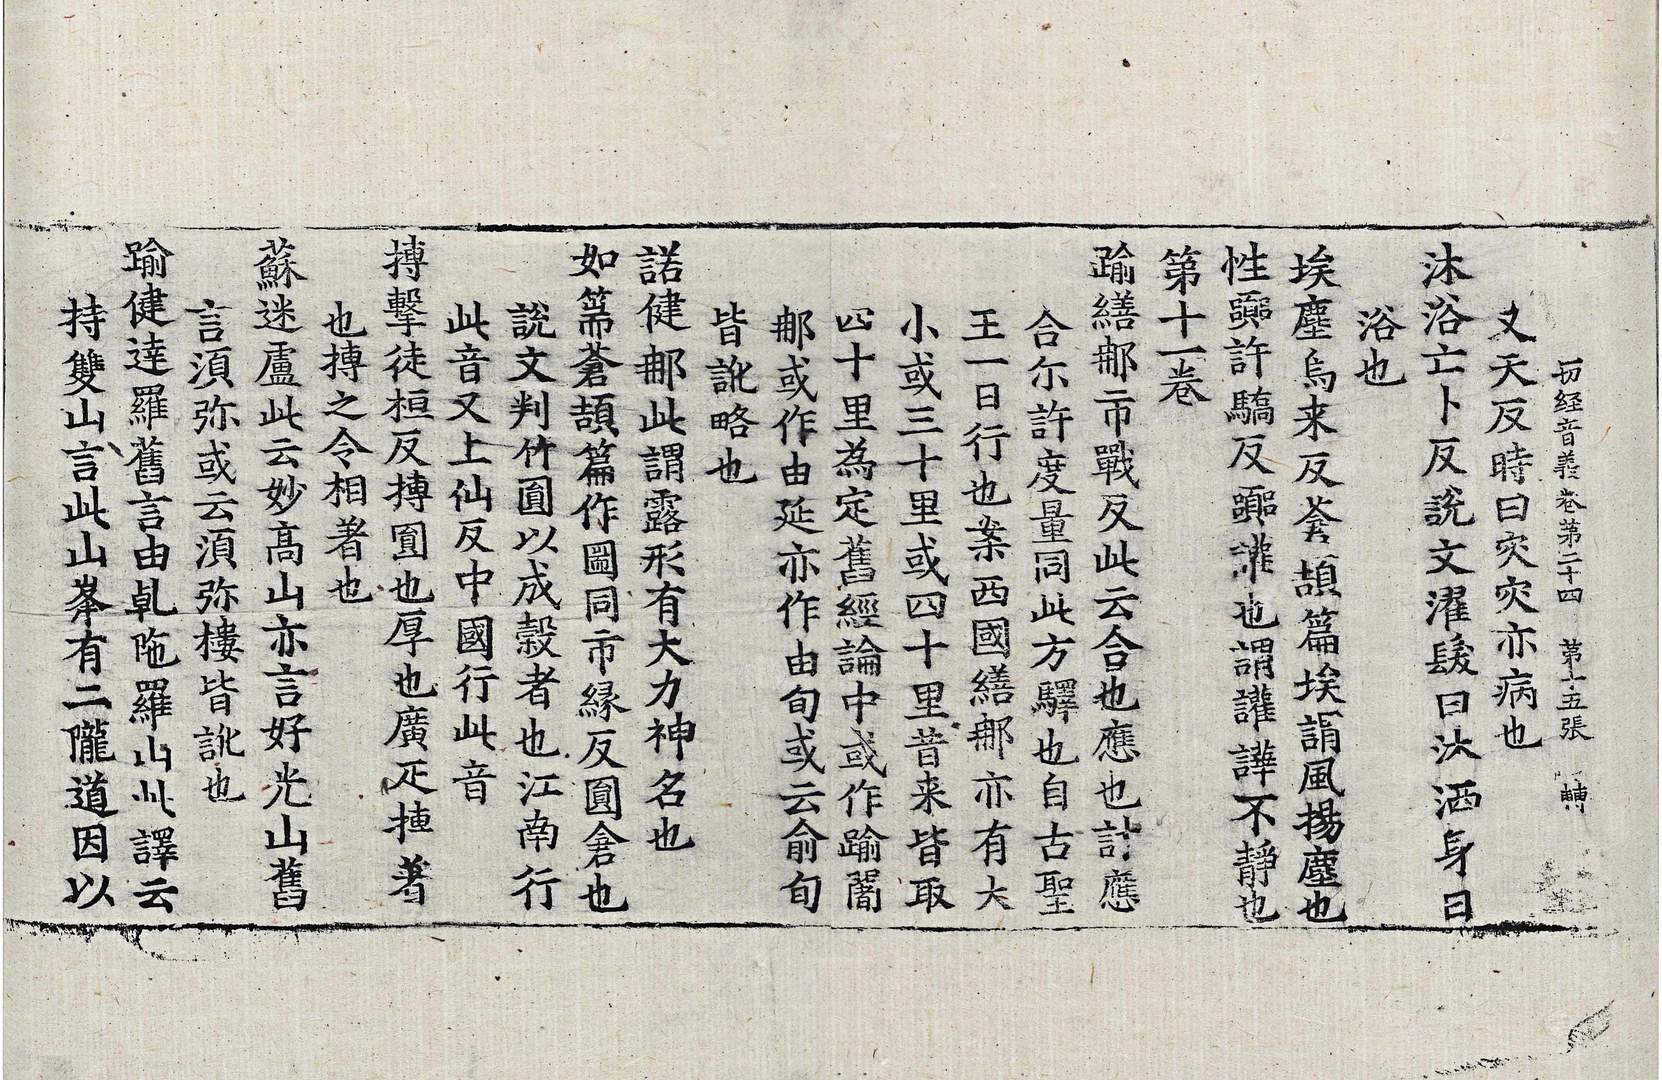 切経音義卷第二十四 第十五張 轉
文天反時曰灾灾亦病也
沐浴亡卜反説文濯髮曰沐洒身曰
浴也
埃塵烏来反蒼頡篇埃謂風揚塵也
性躁許驕反躁讙也謂讙譁不静也
第十一卷
踰繕那市戰反此云合也應也計應
合尒許度量同此方驛也自古聖
王一日行也案西國繕那亦有大
小或三十里或四十里昔来皆取
四十里為定舊經論中或作踰闍
那或作由延亦作由旬或云俞旬
皆訛略也
諾健那此謂露形有大力神名也
如篅蒼頡篇作圌同市緣反圓倉也
説文判竹圓以成穀者也江南行
此音又上仙反中國行此音
摶擊徒桓反摶圓也厚也廣疋捶著
也摶之令相著也
蘇迷盧此云妙髙山亦言好光山舊
言湏弥或云湏弥樓皆訛也
踰健達羅舊言由乹陁羅山此譯云
持雙山言此山峯有二隴道因以